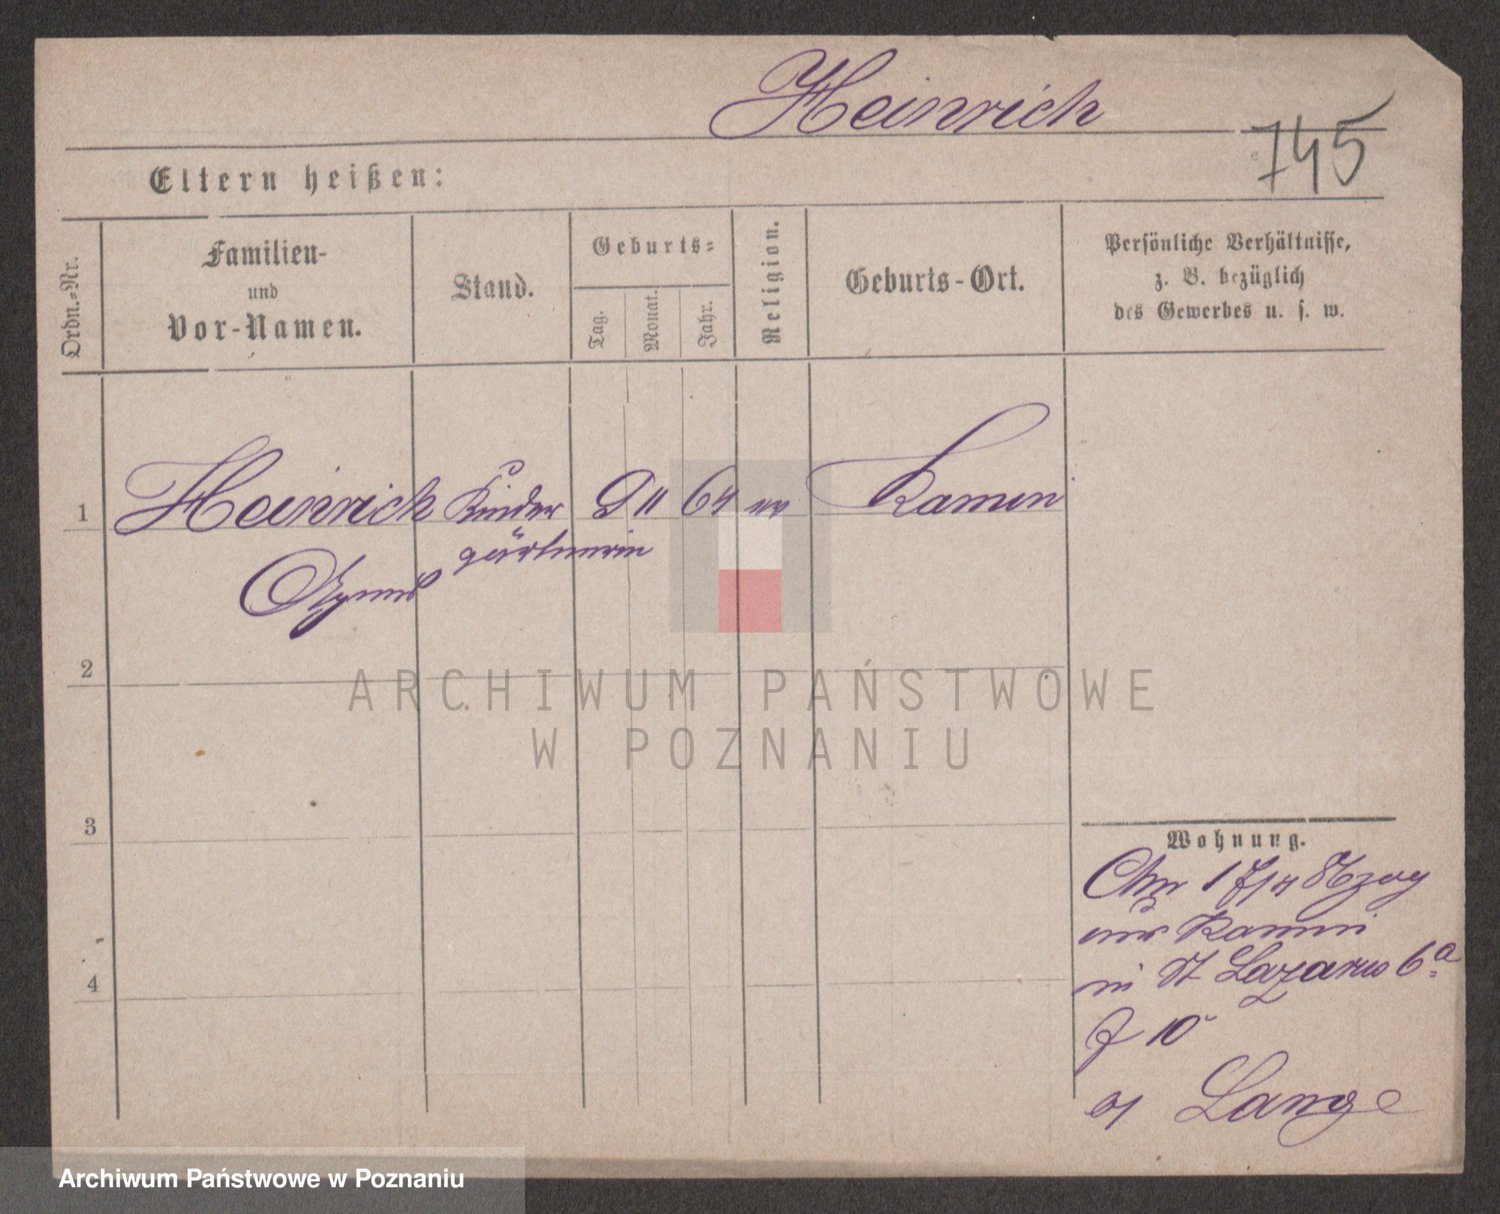 Heinrich
745
Eltern heißen:
Ordn.-Nr.
Familien-
und
Vor-Namen.
Stand.
Geburts-
Tag.
Monat.
Jahr.
Religion.
Geburts-Ort.
Persönliche Verhältnisse,
z. B. bezüglich
des Gewerbes u. s. w.
1
Heinrich Kinder 9 11 64 ev Kamin
gärtnerin
2
ARCHIWUM PAŃSTWOWE
W POZNANIU
3
Wohnung.
17/4
Kamin
in St Lazarus 6a
10
Lange
4
Archiwum Państwowe w Poznaniu